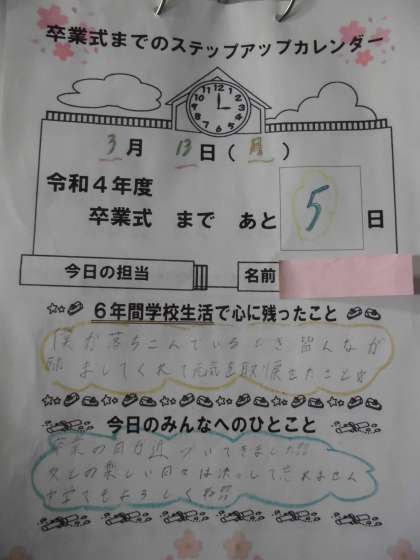 卒業式までのステップアップカレンダー
3月 13日(月)
令和4年度
卒業式 まで あと 5 日
今日の担当
名前
6年間学校生活で心に残ったこと
僕が落ちこんでいるとき皆んなが
励ましてくれて元気を取り戻せたこと
今日のみんなへのひとこと
卒業の日が近づいてきました
の楽しい日々は決して忘れません
でもよろしくね